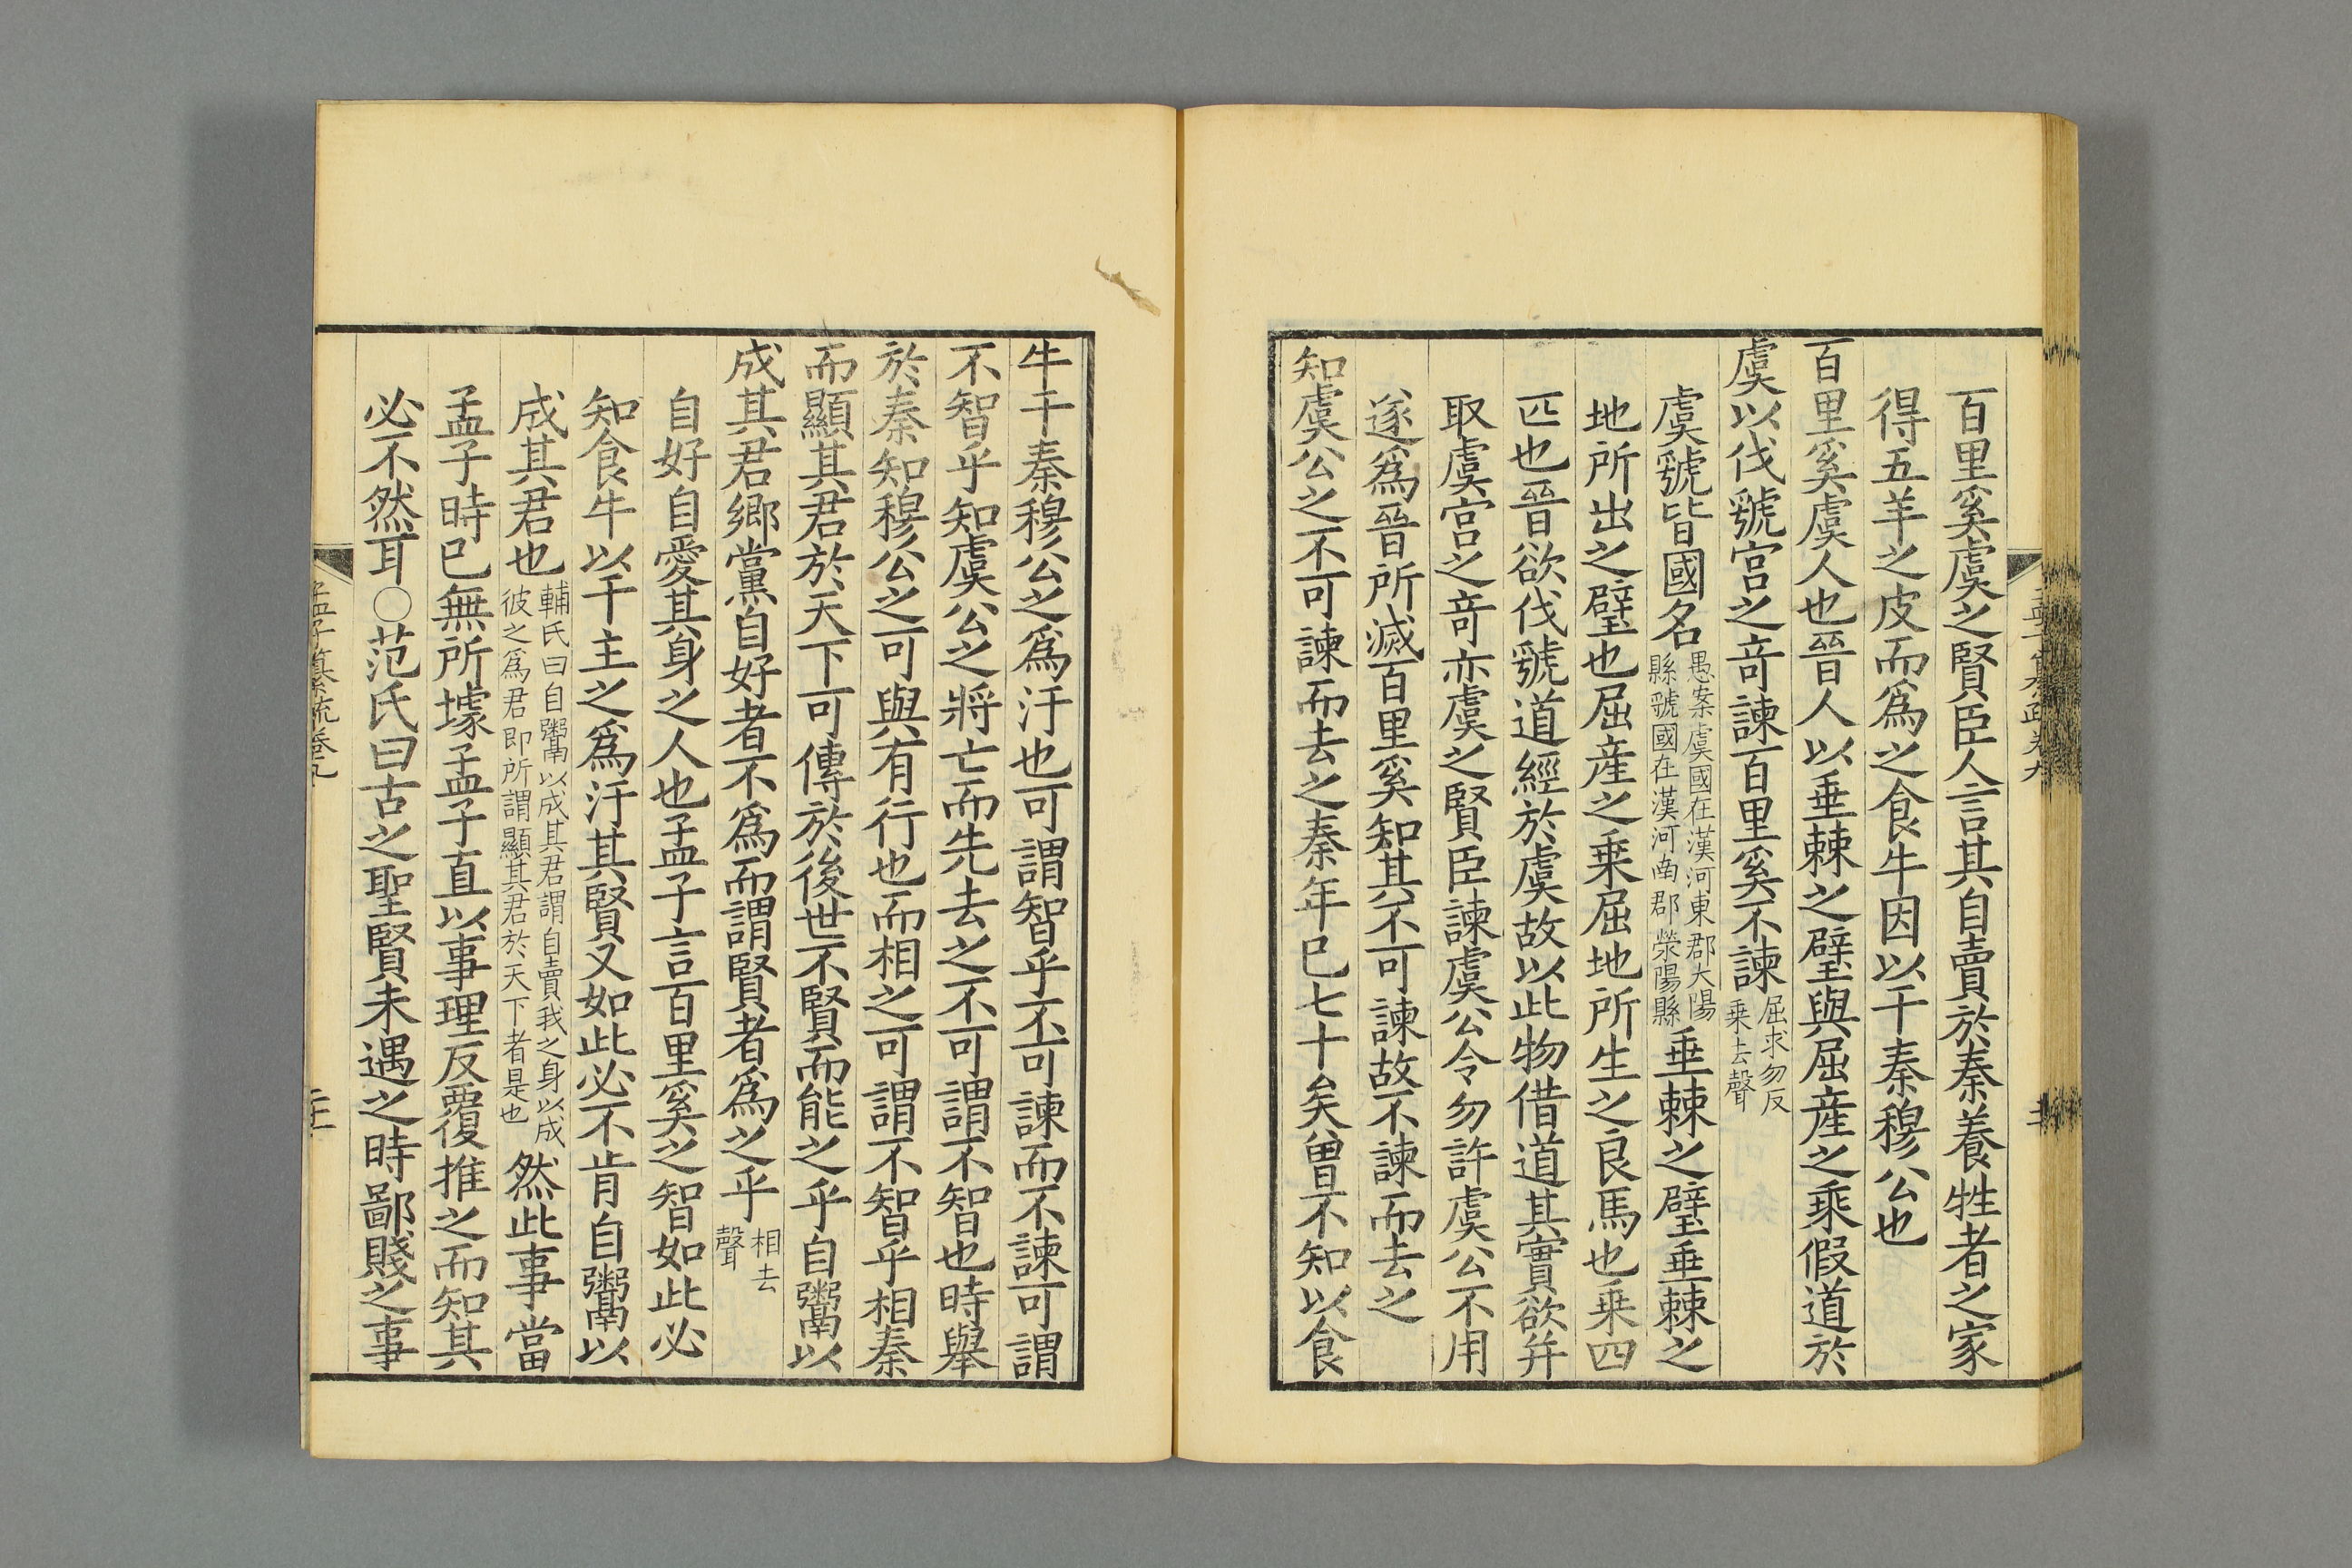 百里奚虞之賢臣人言其自賣於秦養牲者之家
得五羊之皮而爲之食牛因以干秦穆公也
百里奚虞人也晉人以垂棘之璧與屈産之乘假道於
虞以伐虢宮之竒諫百里奚不諫屈求勿反乘去聲
虞虢皆國名愚案虞國在漢河東郡大陽縣虢國在漢河南郡滎陽縣垂棘之璧垂棘之
地所出之璧也屈産之乗屈地所生之良馬也乗四
匹也晉欲伐虢道經於虞故以此物借道其實欲并
取虞宮之竒亦虞之賢臣諫虞公令勿許虞公不用
遂爲晉所滅百里奚知其不可諫故不諫而去之
知虞公之不可諫而去之秦年已七十矣曽不知以食
牛干秦穆公之爲汙也可謂智乎不可諫而不諫可謂
不智乎知虞公之將亡而先去之不可謂不智也時舉
於秦知穆公之可與有行也而相之可謂不智乎相秦
而顯其君於天下可傳於後世不賢而能之乎自鬻以
成其君鄉黨自好者不爲而謂賢者爲之乎相去聲
自好自愛其身之人也孟子言百里奚之智如此必
知食牛以干主之爲汙其賢又如此必不肯自鬻以
成其君也輔氏曰自鬻以成其君謂自賣我之身以成彼之爲君即所謂顯其君於天下者是也然此事當
孟子時已無所據孟子直以事理反覆推之而知其
必不然耳○范氏曰古之聖賢未遇之時鄙賤之事
孟子纂疏卷九